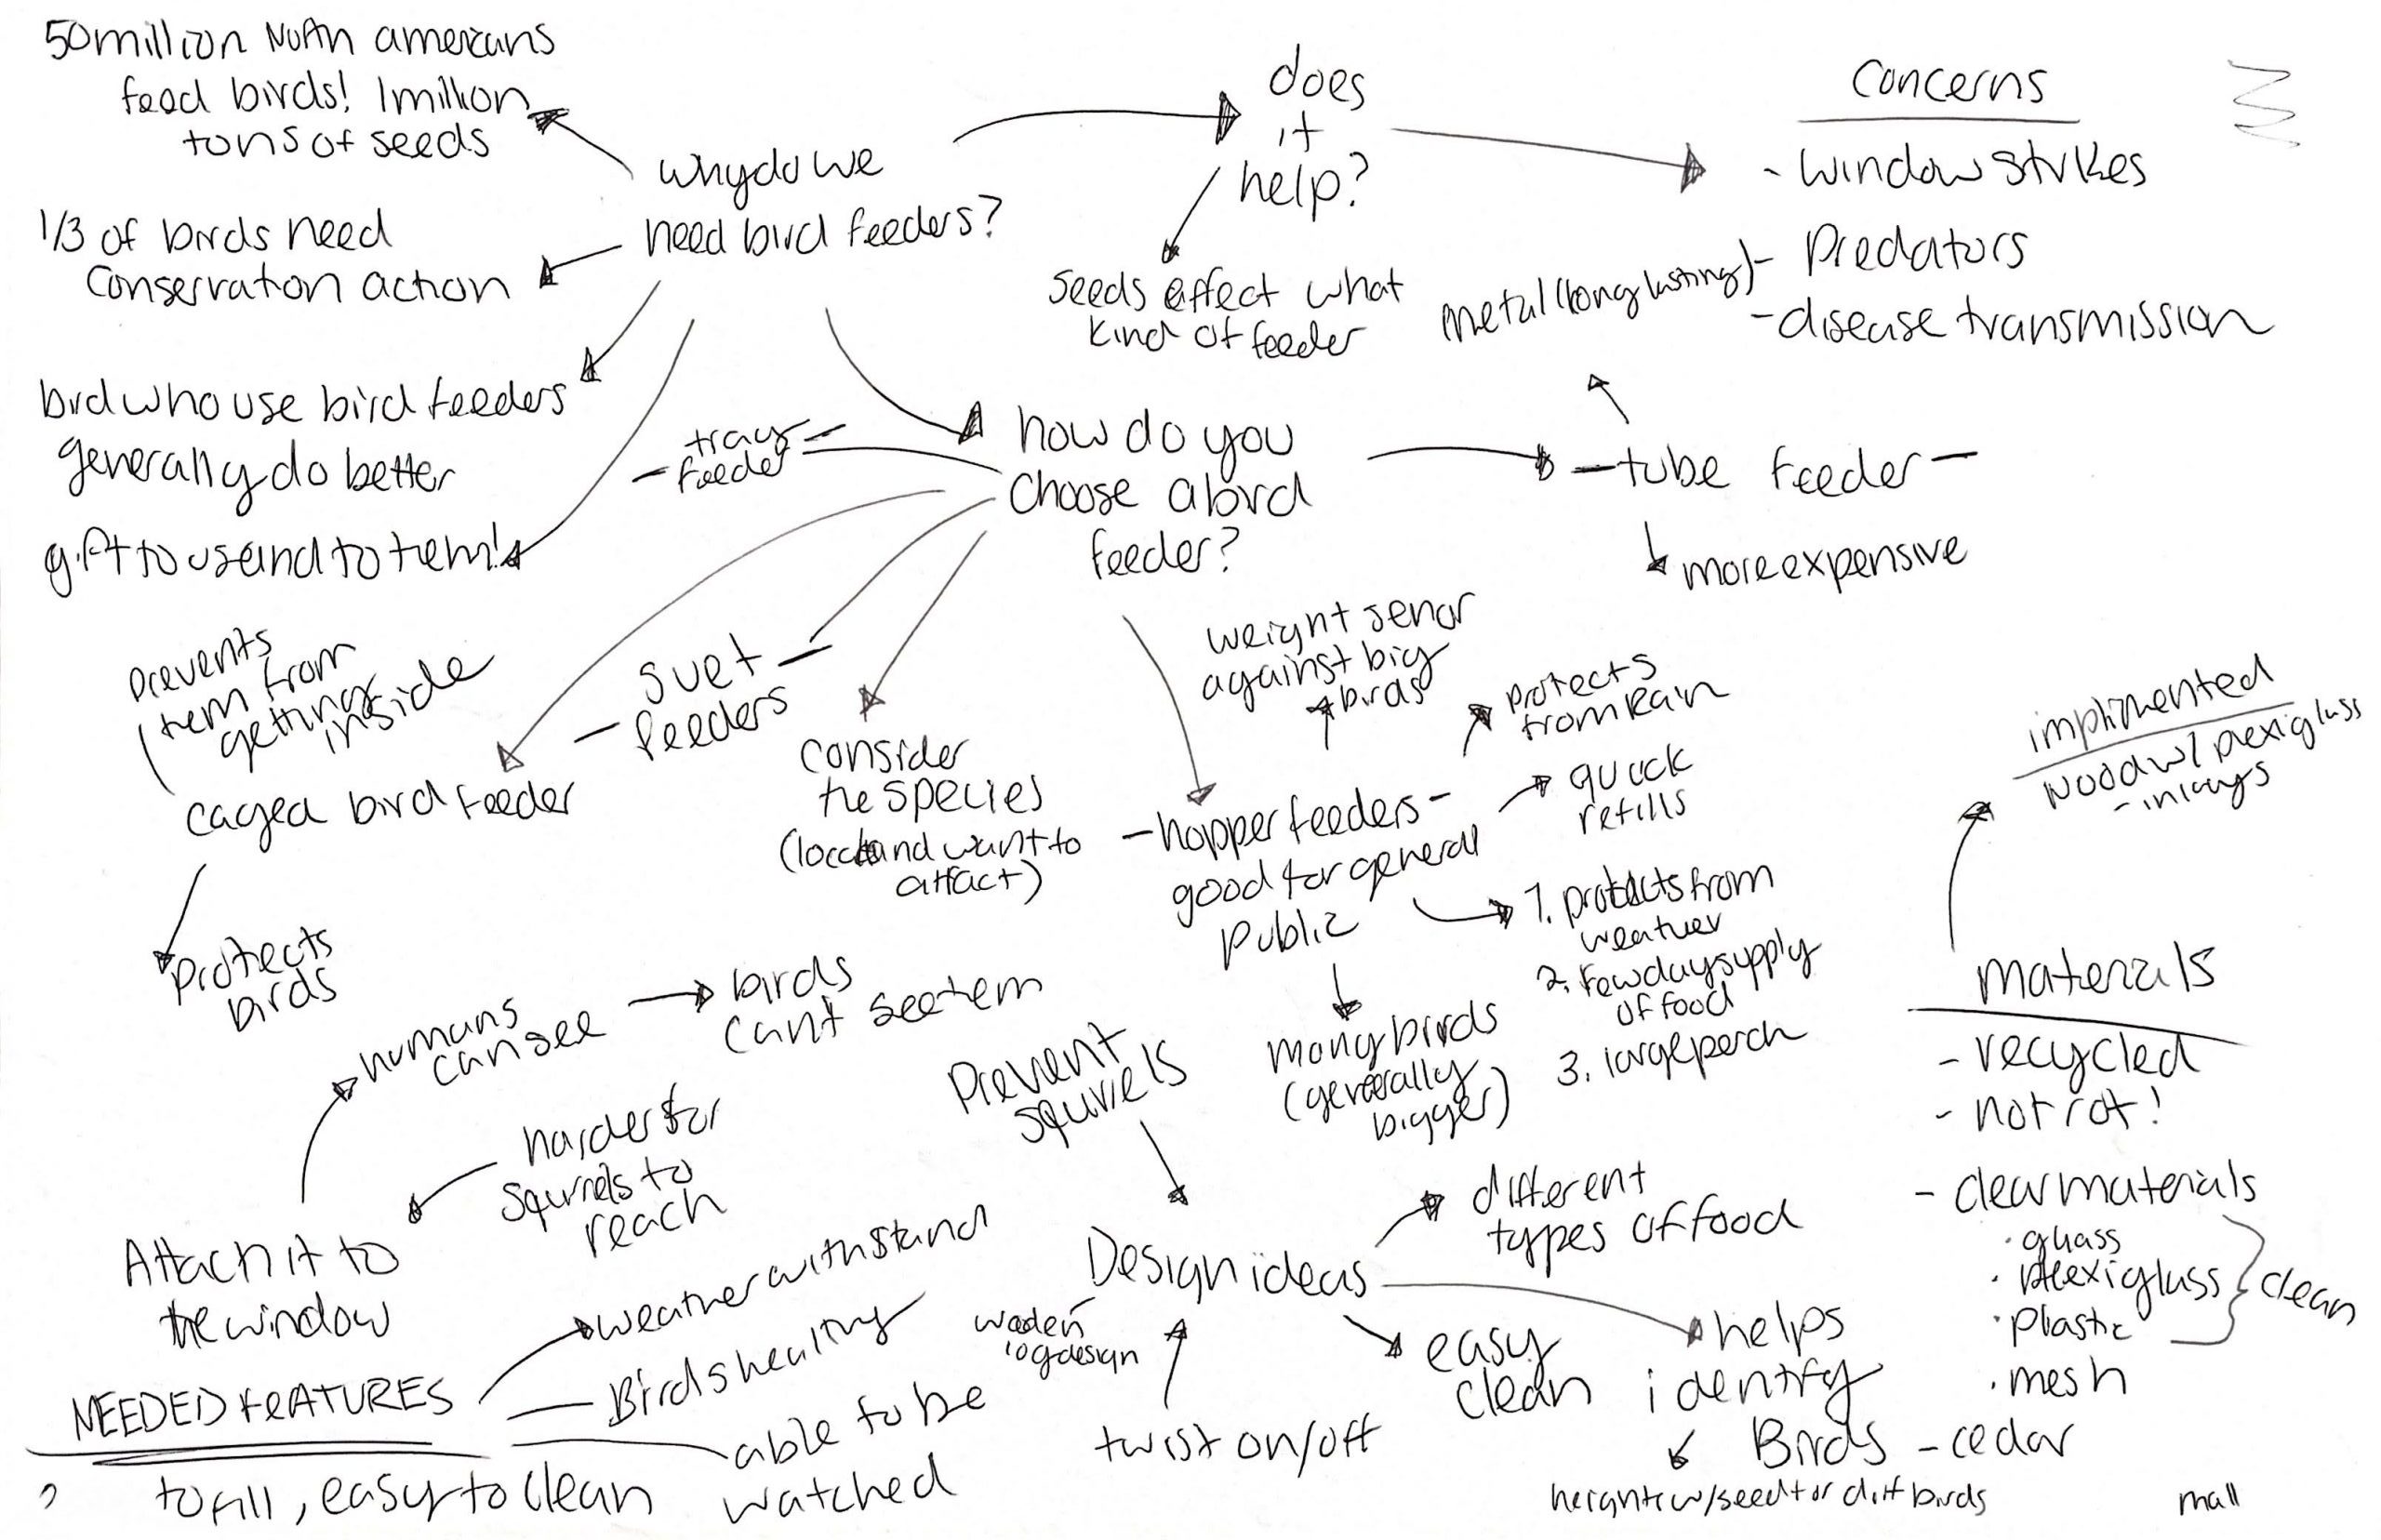 50million North amereans
feed birds! 1million
tons of seeds
why do we
need bird feeders?
does
it
help?
Concerns
- window strikes
- Predators
- disease transmission
1/3 of birds need
Conservation action
seeds effect what
kind of feeder
metal (long lasting)
bird who use bird feeders
generally do better
gift to us and to them!
- tray -
- feeder
how do you
choose a bird
feeder?
- tube feeder -
more expensive
prevents
them from
getting
inside
caged bird feeder
protects
birds
suet -
- feeders
consider
the species
(local and want to
attract)
weight senor
against big
birds
protects
from Rain
quick
refills
- hopper feeders -
good for general
public
1. protects from
weather
2. few day supply
of food
3. large perch
many birds
(generally
bigger)
implimented
wood w/ plexiglass
- inlays
materials
- recycled
- not rot!
- clear materials
· glass
· plexiglass
· plastic
clean
· mesh
- cedar
humans
can see
birds
cant see them
harder for
squirrels to
reach
Attach it to
the window
Prevent
squirrels
Design ideas
different
types of food
wooden
log design
twist on/off
easy
clean
helps
identify
Birds
heights w/ seed for diff birds
NEEDED FEATURES
weather withstand
Birds healthy
able to be
watched
to fill, easy to clean
mall